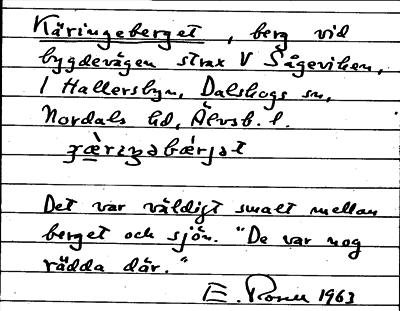 Käringeberget, berg vid
bygdevägen strax V Sågeviken,
1 Hallersbyn, Dalskogs sn,
Nordals hd, Älvsb. l.
Det var väldigt smalt mellan
berget och sjön. "De var nog
rädda där."
E. 1963